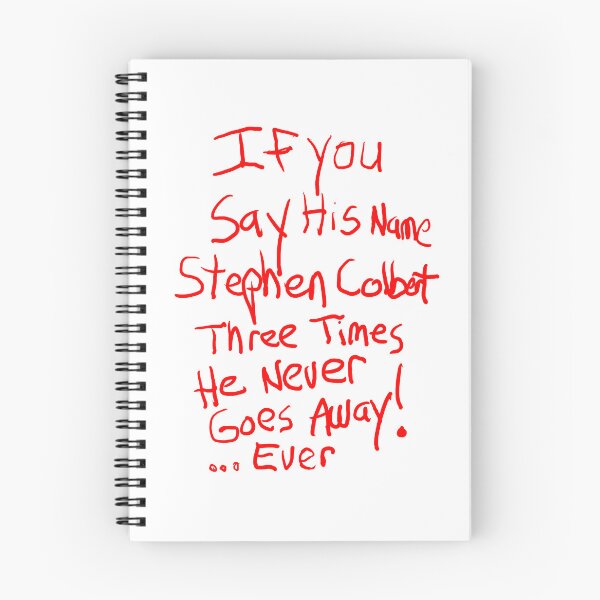 If you
Say His Name
Stephen Colbert
Three Times
He Never
Goes Away!
... Ever